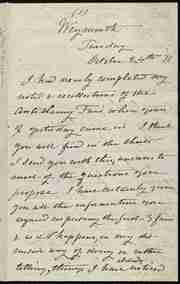 Weymouth
Tuesday
October 24th 71
I had nearly completed my
notes & recollections of the
Anti-Slavery Fair when yours
of yesterday came in. I think
you will find in the sheets
I send you with this, answers to
most of the questions you
propose. I have certainly given
you all the information you
required respecting the first Fair
& as it happens, in very
way of doing
telling, things I have noticed